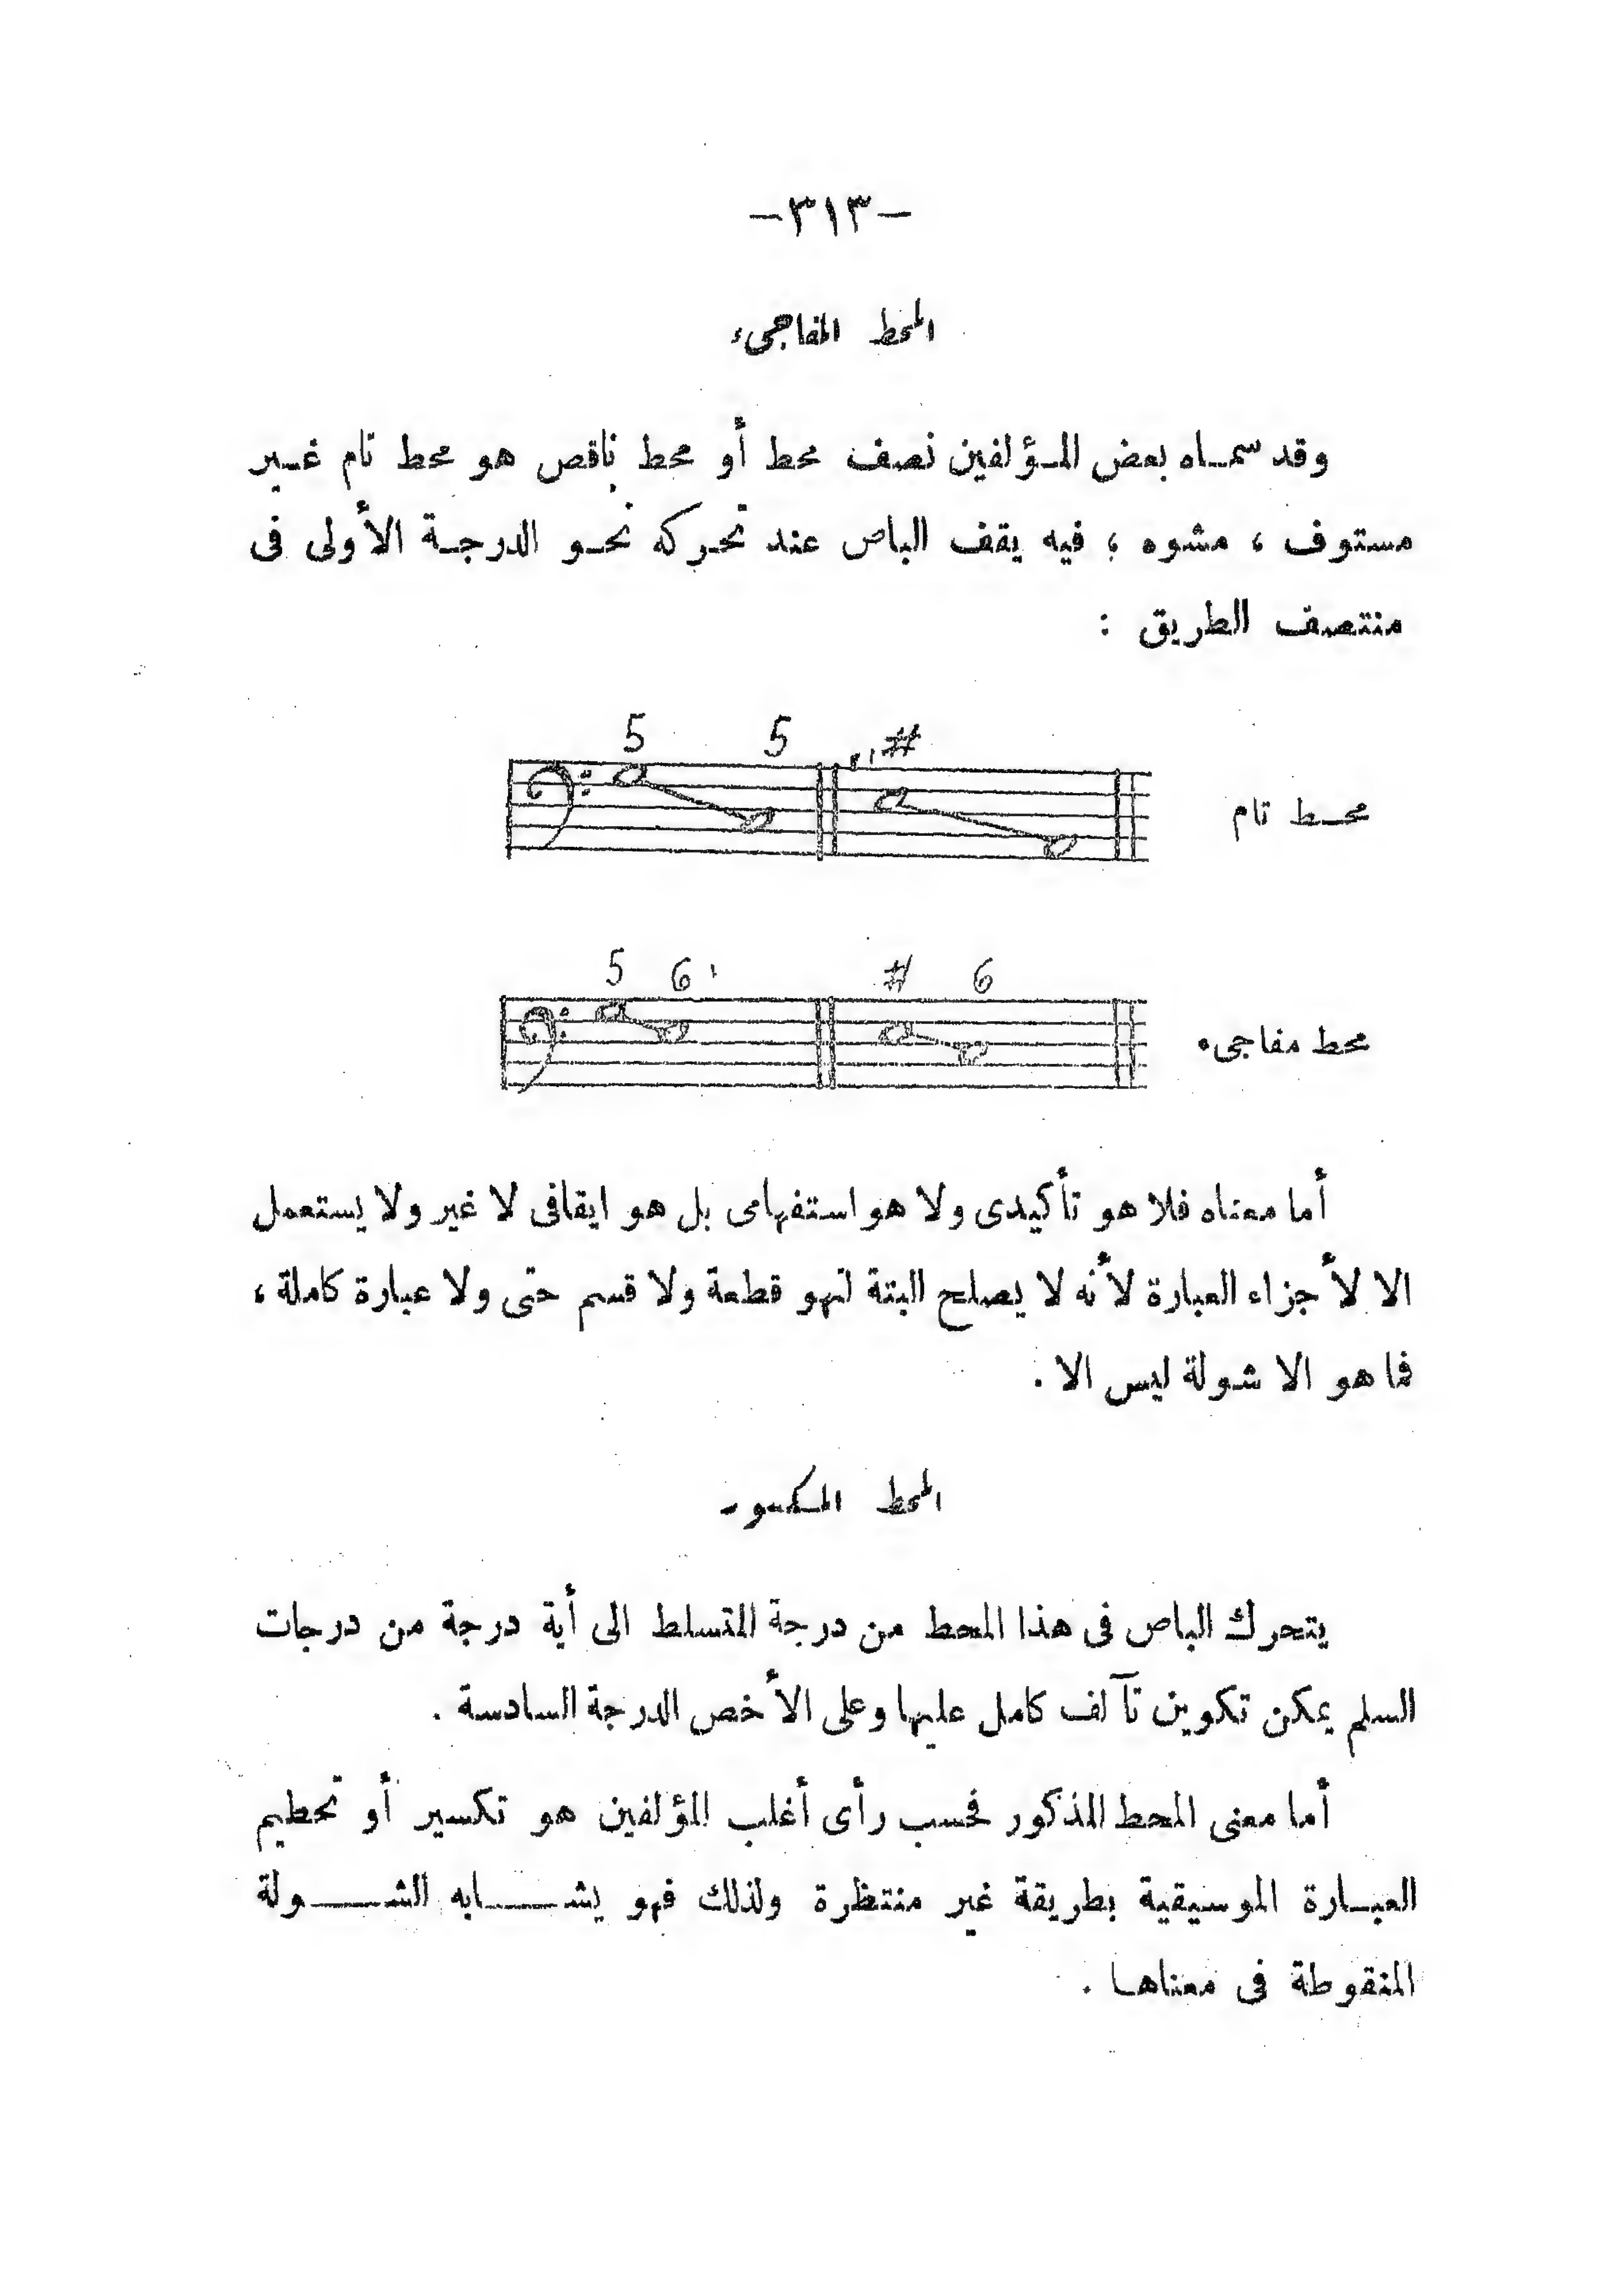 -٣١٣-
المحط المفاجىء
وقد سماه بعض المؤلفين نصف محط أو محط ناقص هو محط تام غير
مستوف ، مشوه ؛ فيه يقف الباص عند تحركه نحو الدرجة الأولى فى
منتصف الطريق :
5 5 #
محط تام
5 6 # 6
محط مفاجىء
أما معناه فلا هو تأكيدى ولا هو استفهامى بل هو ايقافى لا غير ولا يستعمل
الا لأجزاء العبارة لأنه لا يصلح البتة لنهو قطعة ولا قسم حتى ولا عبارة كاملة ،
فما هو الا شولة ليس الا .
المحط المكسور
يتحرك الباص فى هذا المحط من درجة المتسلط الى أية درجة من درجات
السلم يمكن تكوين تآلف كامل عليها وعلى الأخص الدرجة السادسة .
أما معنى المحط المذكور فحسب رأى أغلب المؤلفين هو تكسير أو تحطيم
العبارة الموسيقية بطريقة غير منتظرة ولذلك فهو يشابه الشولة
المنقوطة فى معناها .